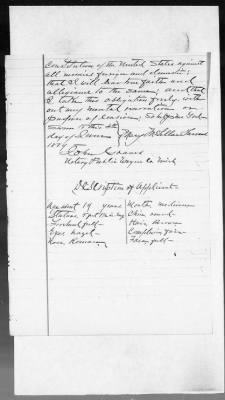 Constitution of the United States against
all enemies foreign and domestic:
that I will bear true faith and
allegiance to the same; and that
I take this obligation freely with
out any mental reservation or
purpose of evasion. So help me God
Sworn to this 4th
day of June
1889
John
Notary Public Wayne Co Mich
Description of Applicant
Age about 19 years Mouth medium
Stature 5 feet in Eng Chin small
Forehead full Hair Brown
Eyes hazel Complexion fair
Nose Roman Face full